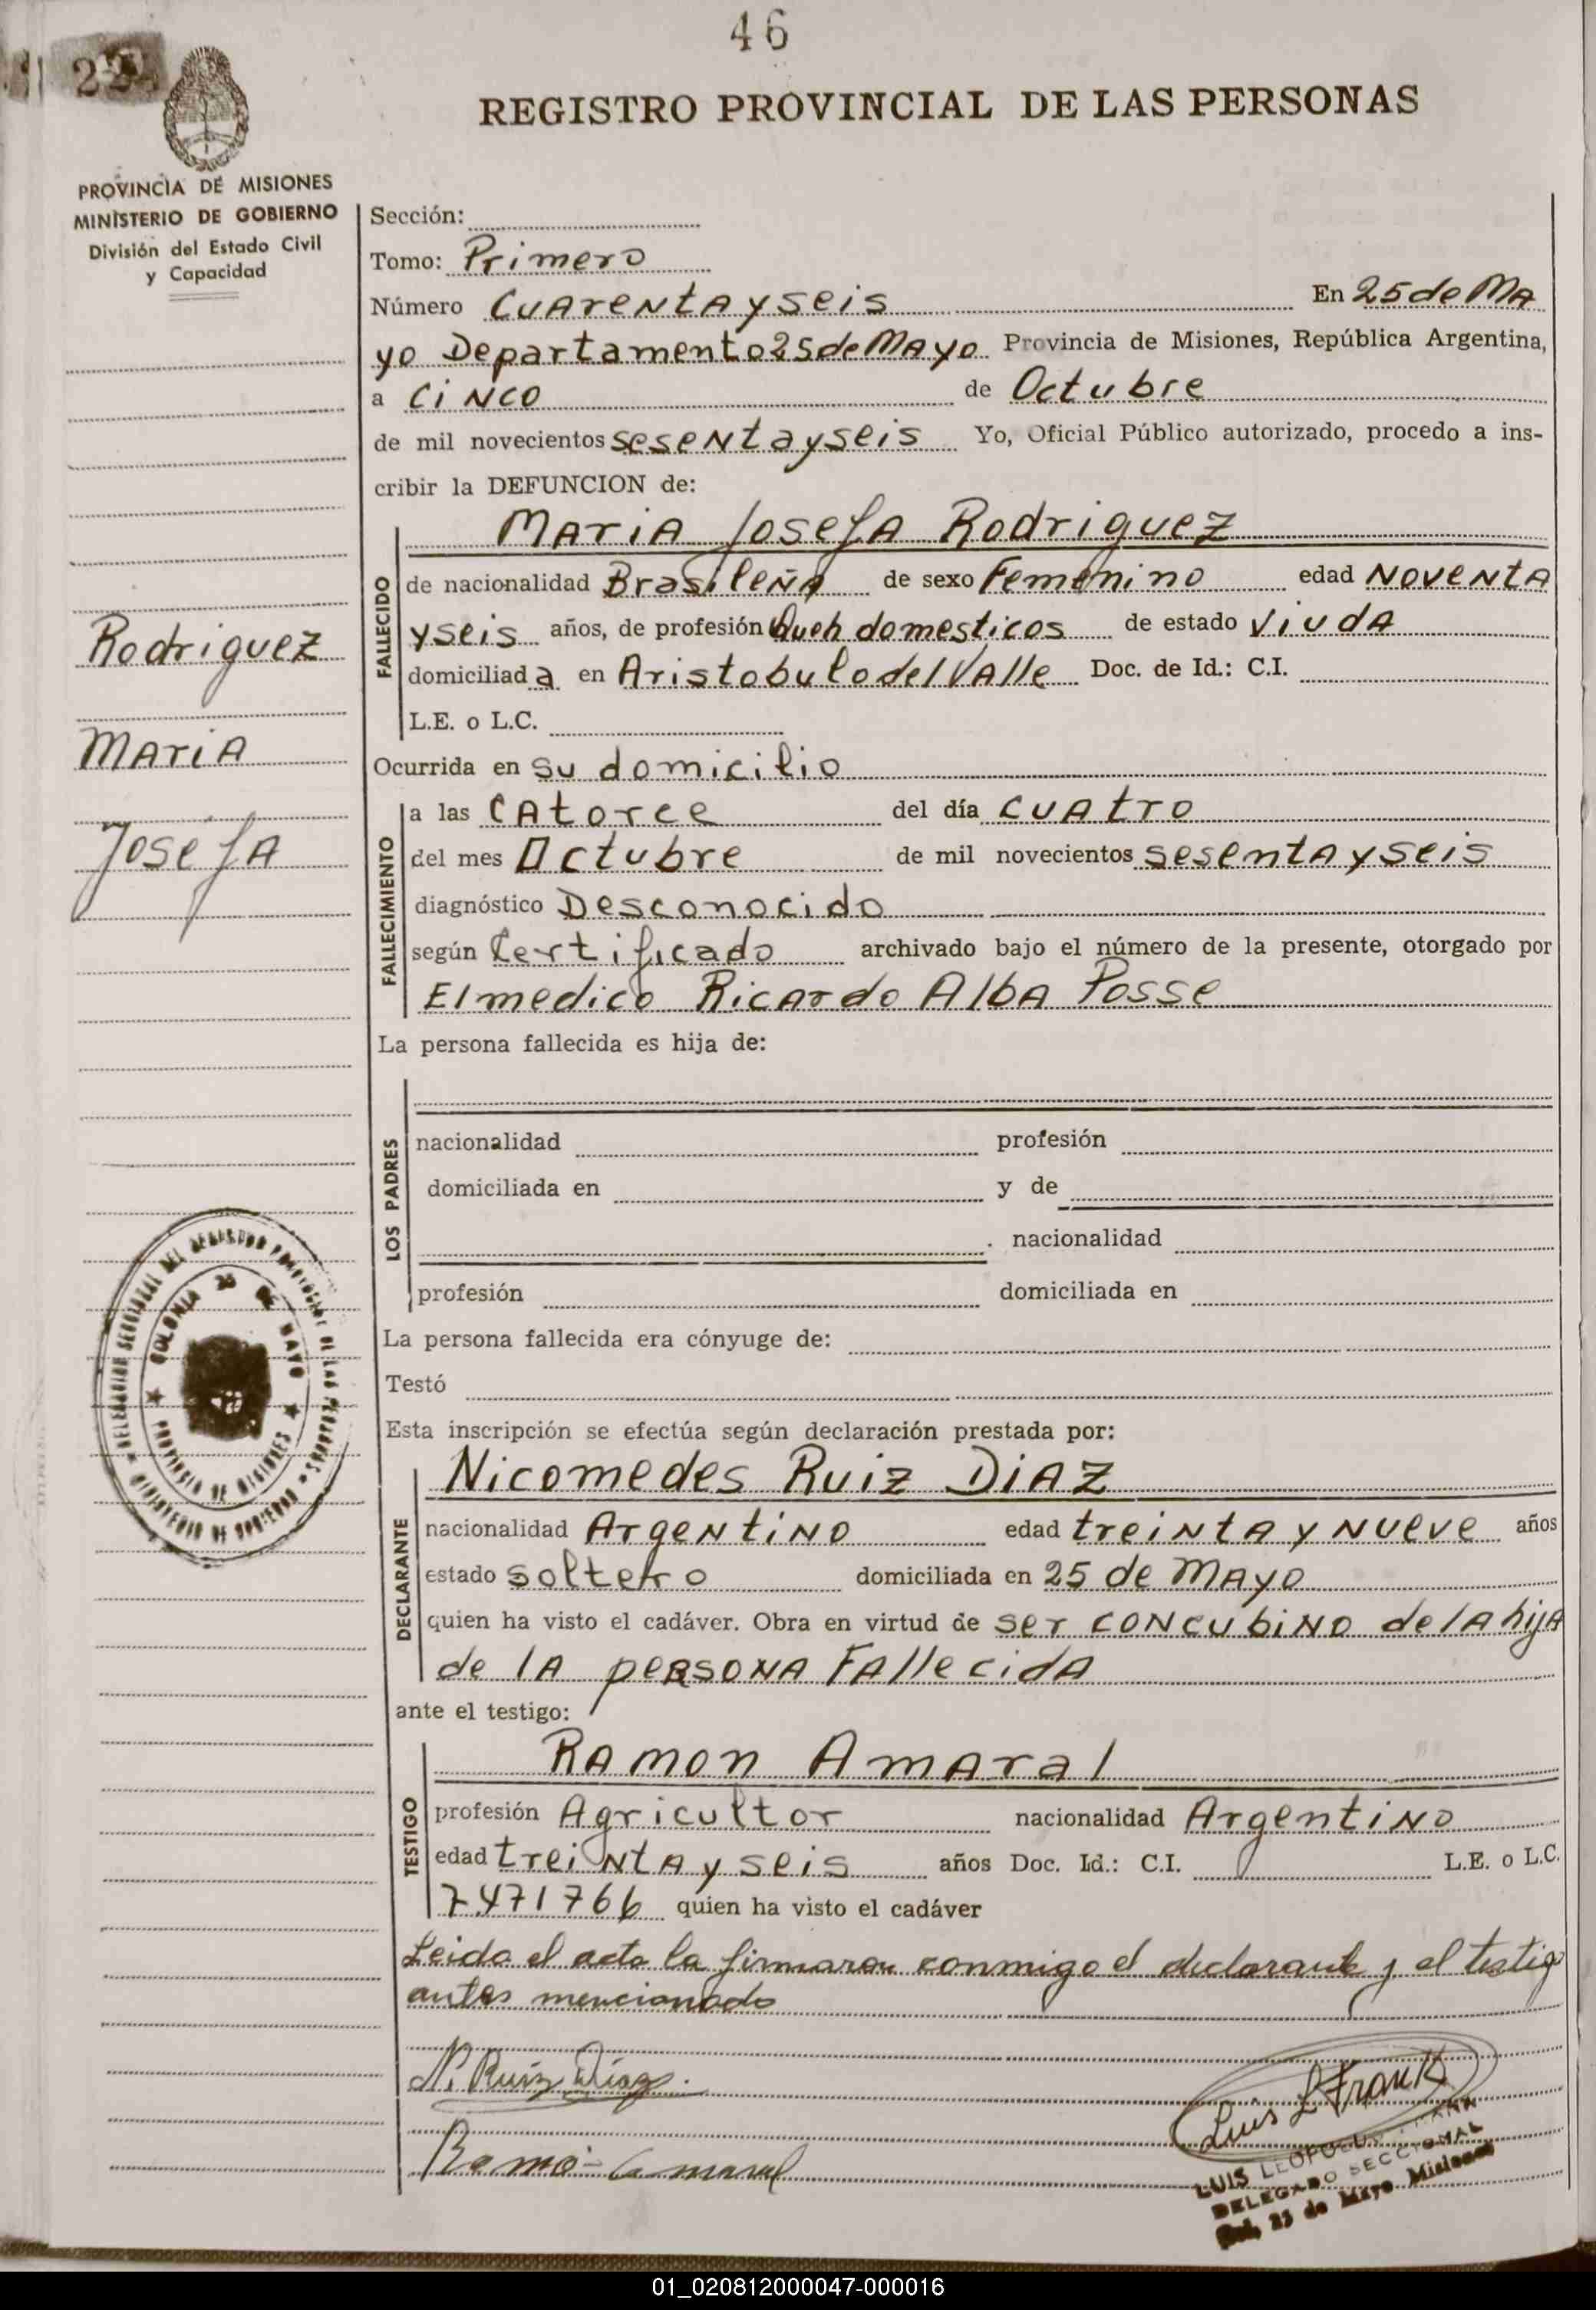 46
22
REGISTRO PROVINCIAL DE LAS PERSONAS
PROVINCIA DE MISIONES
MINISTERIO DE GOBIERNO
División del Estado Civil
y Capacidad
Sección:
Tomo: Primero
Número Cuarenta y seis En 25 de Ma
yo Departamento 25 de Mayo Provincia de Misiones, República Argentina,
a Cinco de Octubre
de mil novecientos sesenta y seis Yo, Oficial Público autorizado, procedo a ins-
cribir la DEFUNCION de:
Maria Josefa Rodriguez
FALLECIDO
de nacionalidad Brasileña de sexo Femenino edad Noventa
y seis años, de profesión Queh domesticos de estado Viuda
domiciliada en Aristobulo del Valle Doc. de Id.: C.I.
L.E. o L.C.
Rodriguez
Maria
Josefa
Ocurrida en su domicilio
FALLECIMIENTO
a las Catorce del día cuatro
del mes Octubre de mil novecientos sesenta y seis
diagnóstico Desconocido
según Certificado archivado bajo el número de la presente, otorgado por
El medico Ricardo Alba Posse
La persona fallecida es hija de:
LOS PADRES
nacionalidad profesión
domiciliada en y de
. nacionalidad
profesión domiciliada en
La persona fallecida era cónyuge de:
Testó
Esta inscripción se efectúa según declaración prestada por:
Nicomedes Ruiz Diaz
DECLARANTE
nacionalidad Argentino edad treinta y nueve años
estado soltero domiciliada en 25 de Mayo
quien ha visto el cadáver. Obra en virtud de ser concubino de la hija
de la persona Fallecida
ante el testigo:
Ramon Amaral
TESTIGO
profesión Agricultor nacionalidad Argentino
edad treinta y seis años Doc. Id.: C.I. L.E. o L.C.
7471766 quien ha visto el cadáver
Leido el acta la firmaron conmigo el declarante y el testigo
antes mencionado
N. Ruiz Díaz.
Luis L Frank
Ramon Amaral
LUIS LEOPOLDO
DELEGADO SECCIONAL
Col. 25 de Mayo Misiones
DELEGACION SECCIONAL DEL REGISTRO PROVINCIAL DE LAS PERSONAS
MINISTERIO DE GOBIERNO
COLONIA 25 DE MAYO
PROVINCIA DE MISIONES
01_020812000047-000016